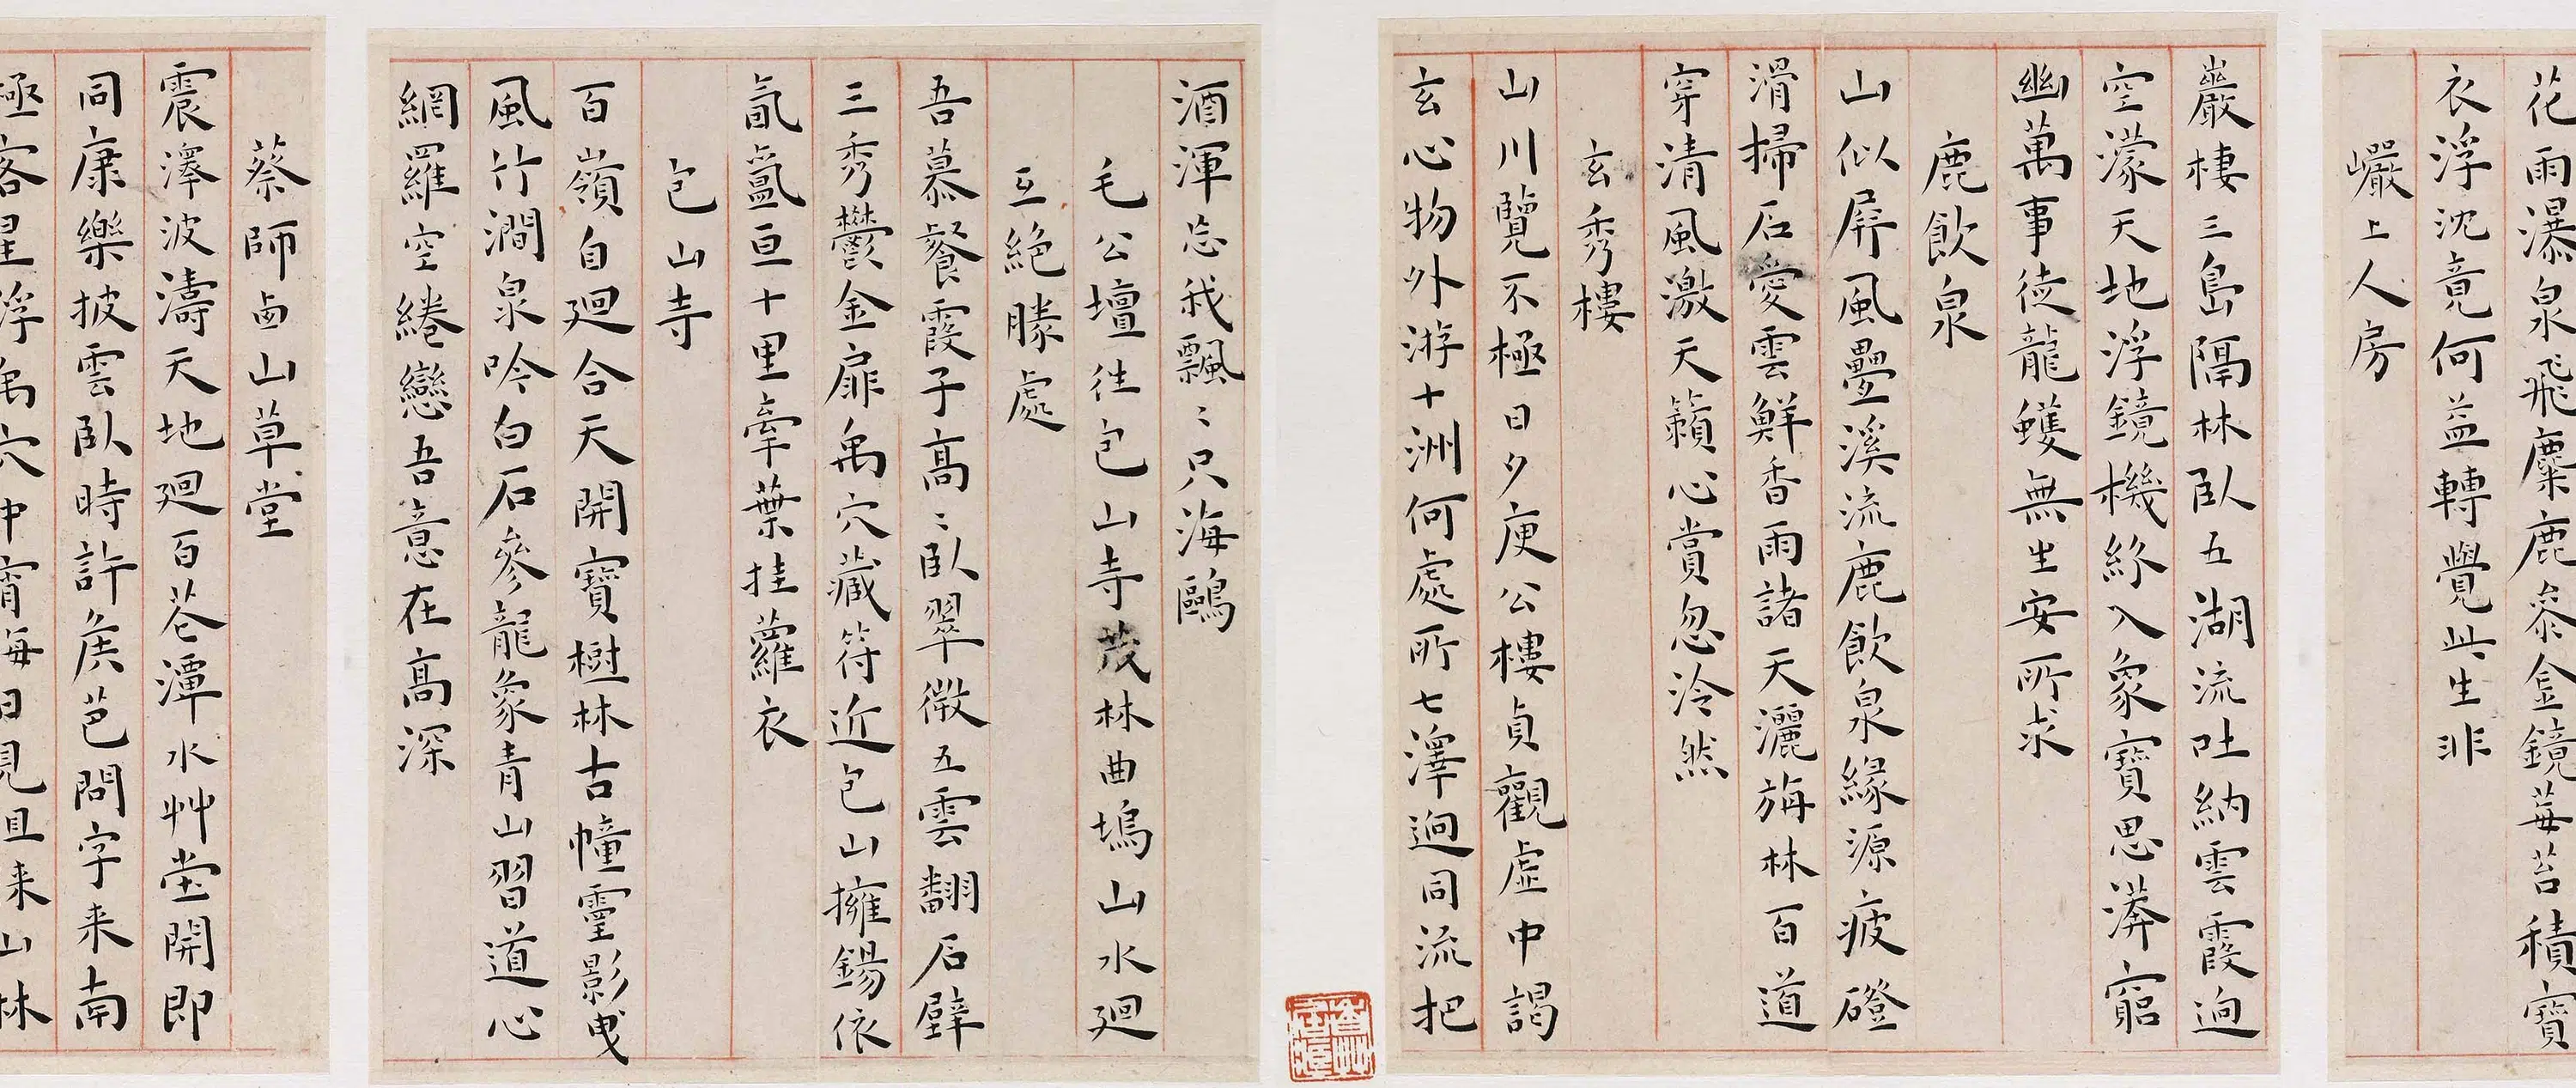 花雨瀑泉飛麋鹿叅金鏡莓苔積寶
衣浮沈竟何益轉覺此生非
巗上人房
巖棲三島隔林臥五湖流吐納雲霞迥
空濛天地浮鏡機絲入象寶思溿窮
幽萬事徒龍蠖無生安所求
鹿飲泉
山似屏風疊溪流鹿飲泉緣源疲磴
滑掃石愛雲鮮香雨諸天灑旃林百道
穿清風激天籟心賞忽泠然
玄秀樓
山川覽不極日夕庾公樓貞觀虛中謁
玄心物外游十洲何處所七澤迥同流把
酒渾忘我飄〻只海鷗
毛公壇往包山寺茂林曲塢山水廻
互絕勝處
吾慕餐霞子高〻臥翠微五雲翻石壁
三秀鬱金扉禹穴藏符近包山擁錫依
氤氳亘十里牽葉挂蘿衣
包山寺
百嶺自廻合天開寶樹林古幢靈影曳
風竹澗泉吟白石參龍象青山習道心
網羅空綣戀吾意在高深
蔡師卣山草堂
震澤波濤天地廻百花潭水艸堂開即
同康樂披雲臥時許侯芭問字来南
極客星浮禹穴中宵海日見且来山林